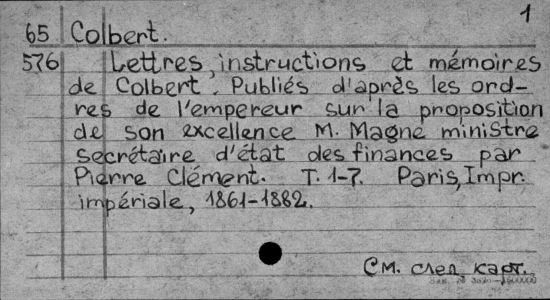 1
65 Colbert.
576 Lettres, instructions et mémoires
de Colbert. Publiés d'après les ord-
res de l'empereur sur la proposition
de son excellence M. Magne ministre
secrétaire d'état des finances par
Pierre Clément. T. 1-7. Paris, Impr.
impériale, 1861-1882.
См. след. карт.